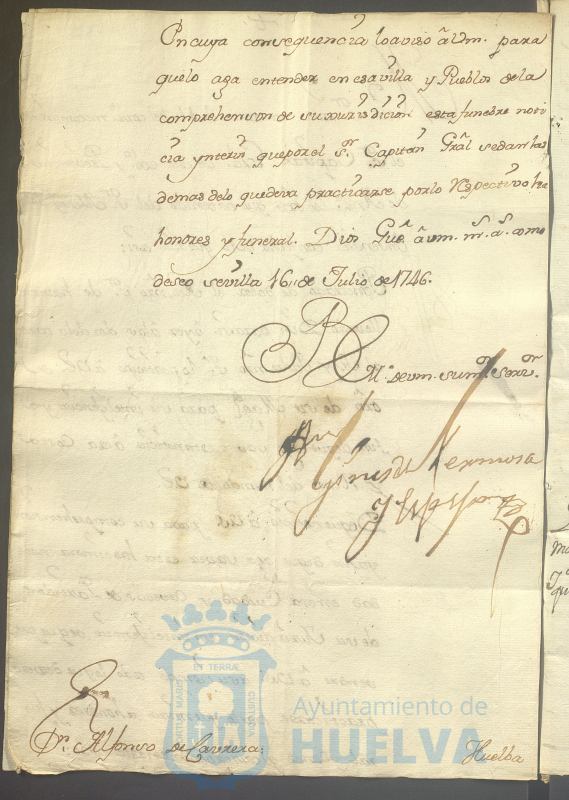 En cuya consequencia lo aviso â Vm. para
que lo aga entender en esa villa y Pueblos de la
comprehension de su jurisdicion esta funebre noti
cia ynterin que por el Sr. Capitan Gral se dan las
demas de lo que deva practicarse por lo Respectivo ha
honores y funeral. Dios Gue. â vm. ms. as. como
deseo sevilla 16 de Julio de 1746.
B l M. de vm. su mor. servor.
Gines de Hermosa
y Espejo
Dn. Alfonso de Carrera:
Huelba
PORTUS MARIS ET TERRAE CUSTODIA
Ayuntamiento de
HUELVA